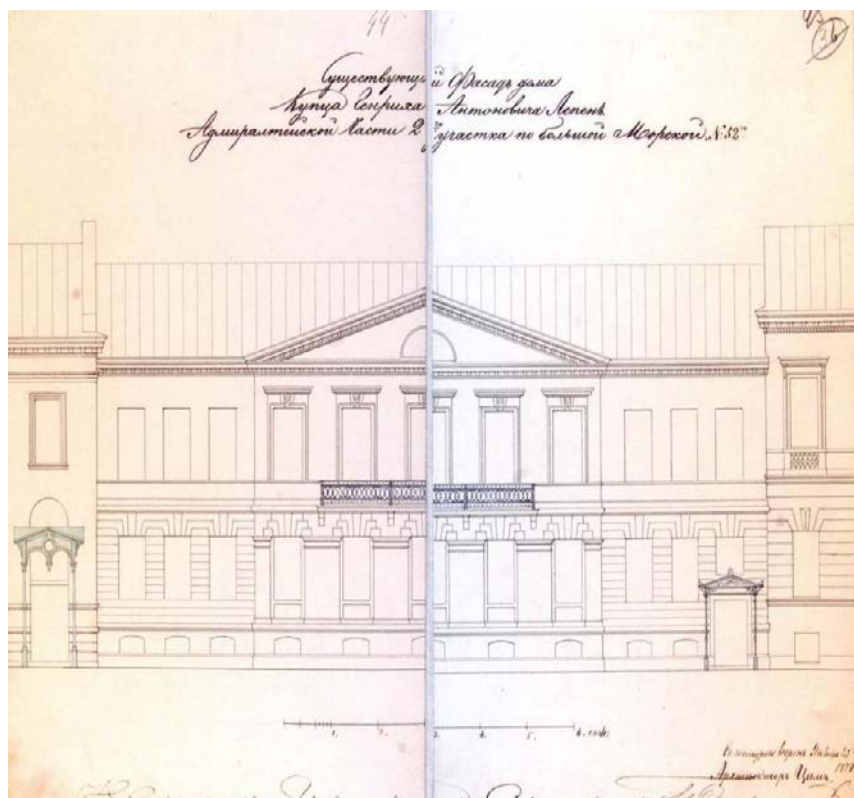 44
36
Существующій Фасадъ дома
Купца Генриха Антоновича Лепенъ
Адмиралтейской Части 2го участка по большой Морской №52го
1. 2. 3. 4. 5. 6. саж:
Съ натурою веренъ
1874
Архитекторъ Цимъ